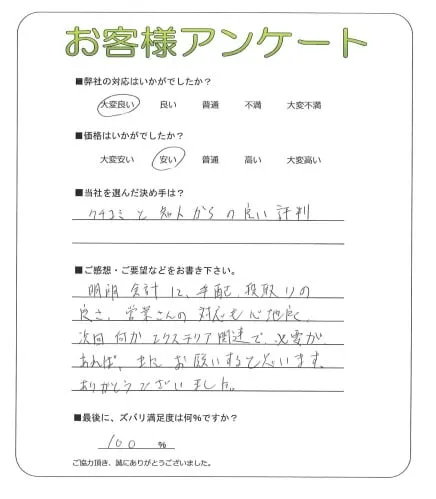 お客様アンケート
■弊社の対応はいかがでしたか?
大変良い 良い 普通 不満 大変不満
■価格はいかがでしたか?
大変安い 安い 普通 高い 大変高い
■当社を選んだ決め手は?
クチコミと知人からの良い評判
■ご感想・ご要望などをお書き下さい。
明朗会計に、手配、段取りの
良さ、営業さんの対応も心地良く
次回何かエクステリア関連で、必要が
あれば、またお願いすると思います。
ありがとうございました。
■最後に、ズバリ満足度は何%ですか?
100 %
ご協力頂き、誠にありがとうございました。